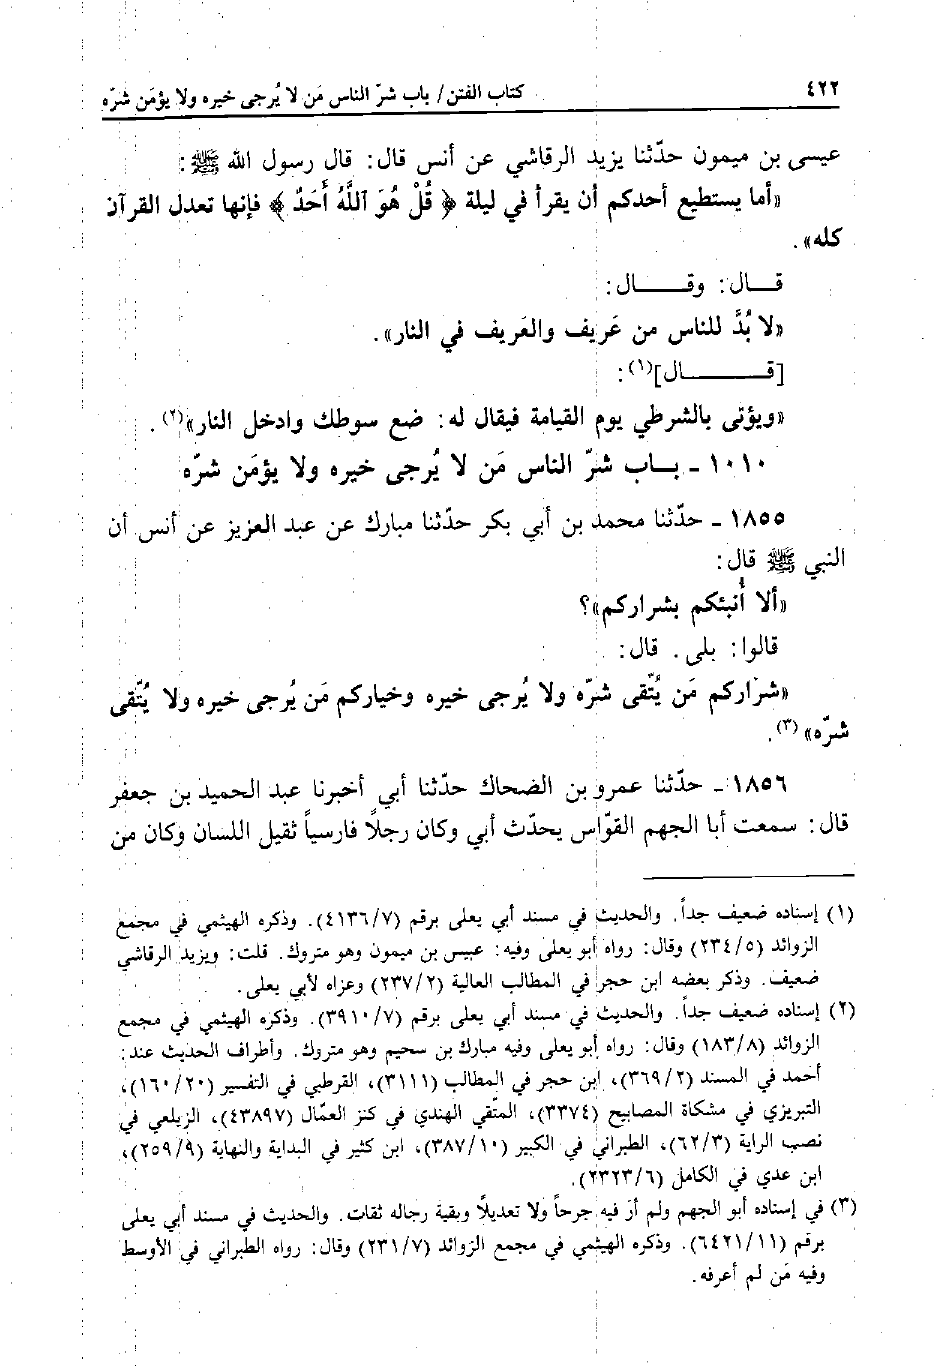 ٤٢٢
كتاب الفتن/ باب شرّ الناس مَن لا يُرجى خيره ولا يؤمَن شرّه
عيسى بن ميمون حدّثنا يزيد الرقاشي عن أنس قال: قال رسول الله ﷺ:
«أما يستطيع أحدكم أن يقرأ في ليلة ﴿ قُلْ هُوَ ٱللَّهُ أَحَدٌ ﴾ فإنها تعدل القرآن
كله».
قـال: وقـــال:
«لا بُدَّ للناس من عَريف والعَريف في النار».
[قــــــال](١):
«ويؤتى بالشرطي يوم القيامة فيقال له: ضع سوطك وادخل النار»(٢).
١٠١٠ - بـاب شرّ الناس مَن لا يُرجى خيره ولا يؤمَن شرّه
١٨٥٥ - حدّثنا محمد بن أبي بكر حدّثنا مبارك عن عبد العزيز عن أنس أن
النبي ﷺ قال:
«ألا أُنبئكم بشراركم»؟
قالوا: بلى. قال:
«شراركم مَن يُتّقى شرّه ولا يُرجى خيره وخياركم مَن يُرجى خيره ولا يُتّقى
شرّه»(٣).
١٨٥٦ - حدّثنا عمرو بن الضحاك حدّثنا أبي أخبرنا عبد الحميد بن جعفر
قال: سمعت أبا الجهم القوّاس يحدّث أبي وكان رجلاً فارسياً ثقيل اللسان وكان من
(١) إسناده ضعيف جداً. والحديث في مسند أبي يعلى برقم (٤١٣٦/٧). وذكره الهيثمي في مجمع
الزوائد (٢٣٤/٥) وقال: رواه أبو يعلى وفيه: عبيس بن ميمون وهو متروك. قلت: ويزيد الرقاشي
ضعيف. وذكر بعضه ابن حجر في المطالب العالية (٢٣٧/٢) وعزاه لأبي يعلى.
(٢) إسناده ضعيف جداً. والحديث في مسند أبي يعلى برقم (٣٩١٠/٧). وذكره الهيثمي في مجمع
الزوائد (١٨٣/٨) وقال: رواه أبو يعلى وفيه مبارك بن سحيم وهو متروك. وأطراف الحديث عند:
أحمد في المسند (٣٦٩/٢)، ابن حجر في المطالب (٣١١١)، القرطبي في التفسير (١٦٠/٢٠)،
التبريزي في مشكاة المصابيح (٣٣٧٤)، المتّقي الهندي في كنز العمّال (٤٣٨٩٧)، الزيلعي في
نصب الراية (٦٢/٣)، الطبراني في الكبير (٣٨٧/١٠)، ابن كثير في البداية والنهاية (٢٥٩/٩)،
ابن عدي في الكامل (٢٣٢٣/٦).
(٣) في إسناده أبو الجهم ولم أرَ فيه جرحاً ولا تعديلاً وبقية رجاله ثقات. والحديث في مسند أبي يعلى
برقم (٦٤٢١/١١). وذكره الهيثمي في مجمع الزوائد (٢٣١/٧) وقال: رواه الطبراني في الأوسط
وفيه مَن لم أعرفه.